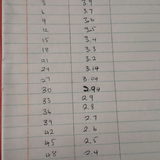 3 3.9
6 3.7
9 3.6
12 3.5
15 3.4
18 3.3
21 3.2
24 3.14
27 3.04
30 2.94
33 2.9
36 2.8
39 2.7
42 2.6
45 2.5
48 2.4